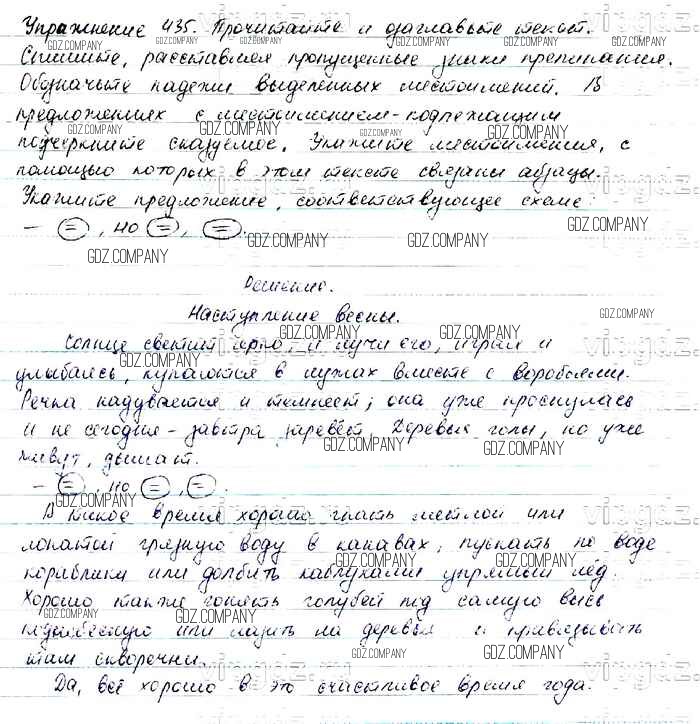 Упражнение 435. Прочитайте и озаглавьте текст.
Спишите, расставляя пропущенные знаки препинания.
Обозначьте падежи выделенных местоимений. В
предложениях с местоимением-подлежащим
подчеркните сказуемое. Укажите местоимения, с
помощью которых в этом тексте связаны абзацы.
Укажите предложение, соответствующее схеме:
– (=), но (=), (=).
Решение.
Наступление весны.
Солнце светит ярко, и лучи его, играя и
улыбаясь, купаются в лужах вместе с воробьями.
Речка надувается и темнеет; она уже проснулась
и не сегодня-завтра заревёт. Деревья голы, но уже
живут, дышат.
– (=), но (=), (=).
В такое время хорошо гнать метлой или
лопатой грязную воду в канавах, пускать по воде
кораблики или долбить каблуками упрямый лёд.
Хорошо также гонять голубей под самую высь
поднебесную или лазить на деревья и привязывать
там скворечни.
Да, всё хорошо в это счастливое время года.